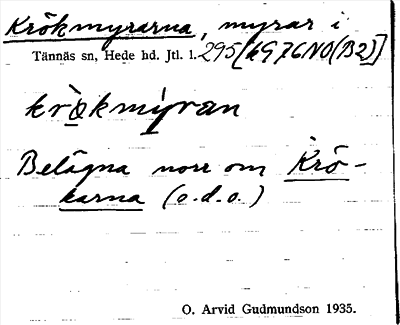 Krökmyrarna, myrar i
Tännäs sn, Hede hd. Jtl. l. 295 [69 76 NO (B2)]
krø̀kmýran
Belägna norr om Krö-
karna (o.d.o.)
O. Arvid Gudmundson 1935.